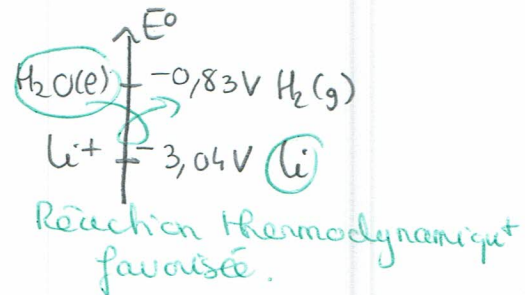 E°
H₂O(l) -0,83V H₂(g)
Li+ -3,04V Li
Réaction thermodynamiqut
favorisée.